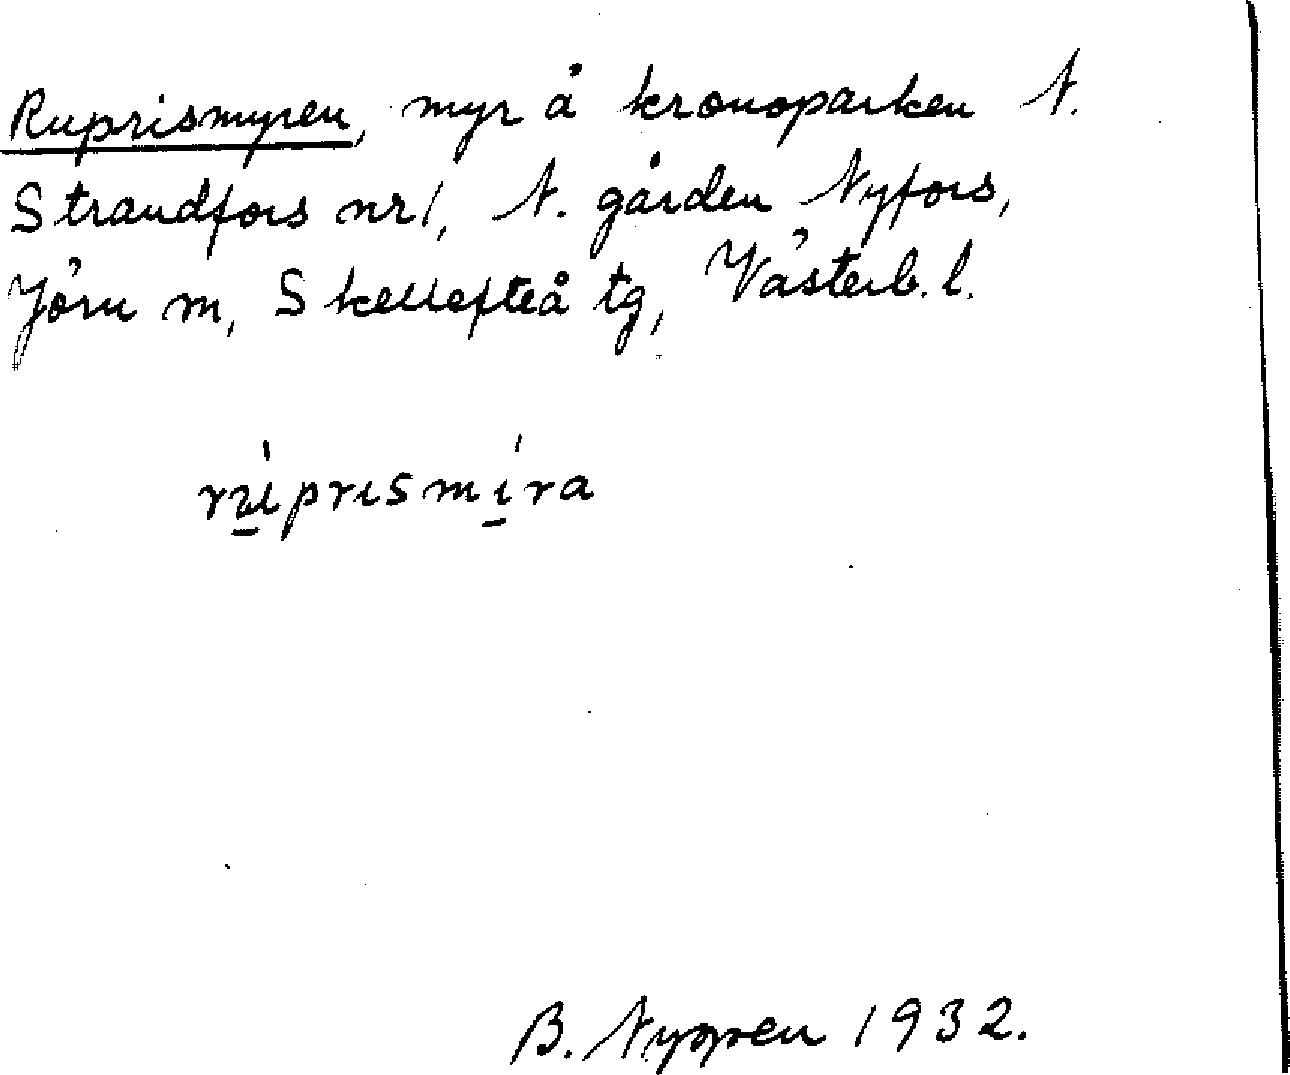 Ruprismyren, myr å kronoparken N.
Strandfors nr 1, N. gården Nyfors,
Jörn m, Skellefteå tg, Västerb. l.
B. Nygren 1932.